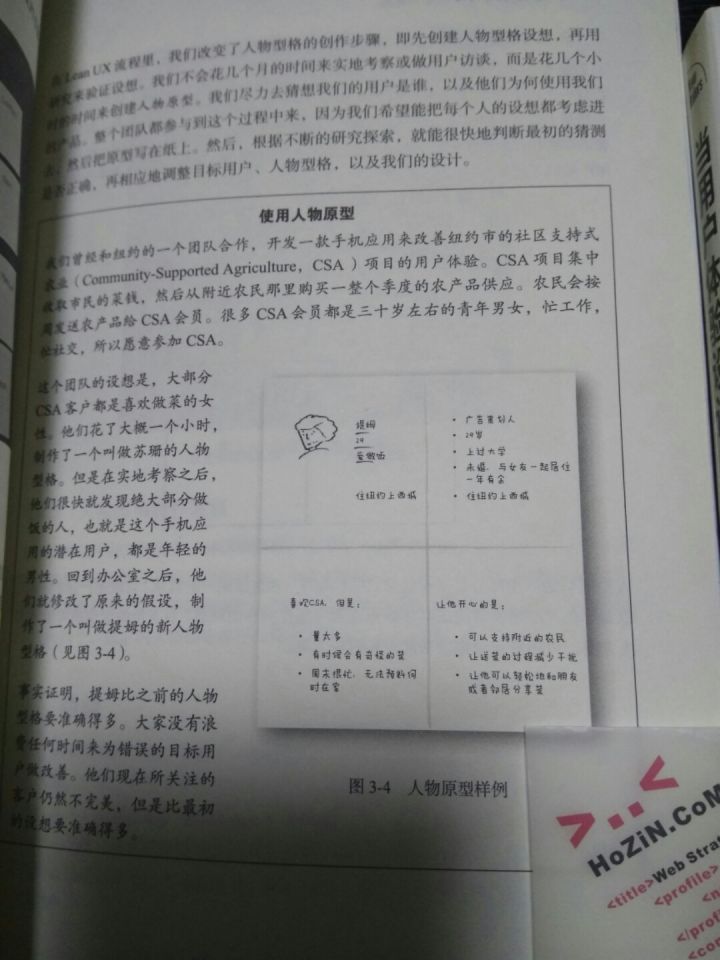 在 Lean UX 流程里，我们改变了人物型格的创作步骤，即先创建人物型格设想，再用
研究来验证设想。我们不会花几个月的时间来实地考察或做用户访谈，而是花几个小
时的时间来创建人物原型。我们尽力去猜想我们的用户是谁，以及他们为何使用我们
的产品。整个团队都参与到这个过程中来，因为我们希望能把每个人的设想都考虑进
去，然后把原型写在纸上。然后，根据不断的研究探索，就能很快地判断最初的猜测
是否正确，再相应地调整目标用户、人物型格，以及我们的设计。
使用人物原型
我们曾经和纽约的一个团队合作，开发一款手机应用来改善纽约市的社区支持式
农业（Community-Supported Agriculture，CSA ）项目的用户体验。CSA 项目集中
收取市民的菜钱，然后从附近农民那里购买一整个季度的农产品供应。农民会按
周发送农产品给 CSA 会员。很多 CSA 会员都是三十岁左右的青年男女，忙工作，
忙社交，所以愿意参加 CSA。
这个团队的设想是，大部分
CSA 客户都是喜欢做菜的女
性。他们花了大概一个小时，
制作了一个叫做苏珊的人物
型格。但是在实地考察之后，
他们很快就发现绝大部分做
饭的人，也就是这个手机应
用的潜在用户，都是年轻的
男性。回到办公室之后，他
们就修改了原来的假设，制
作了一个叫做提姆的新人物
型格（见图 3-4）。
事实证明，提姆比之前的人物
型格要准确得多。大家没有浪
费任何时间来为错误的目标用
户做改善。他们现在所关注的
客户仍然不完美，但是比最初
的设想要准确得多。
提姆
29
爱做饭
住纽约上西城
• 广告策划人
• 29岁
• 上过大学
• 未婚，与女友一起居住
一年有余
• 住纽约上西城
喜欢CSA，但是：
• 量太多
• 有时候会有奇怪的菜
• 周末很忙，无法预料何
时在家
让他开心的是：
• 可以支持附近的农民
• 让送菜的过程减少干扰
• 让他可以轻松地和朋友
或者邻居分享菜
图 3-4 人物原型样例
当用户体验
>..<
HoZiN.CoM
<title>Web Strat
<profile>
</profi
<con